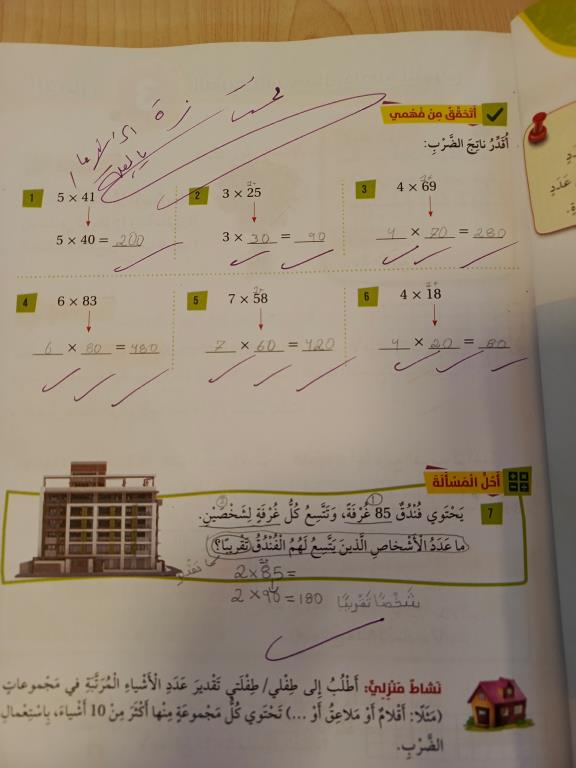 أَتَحَقَّقُ مِنْ فَهْمِي
أُقَدِّرُ ناتِجَ الضَّرْبِ:
1 5 × 41
5 × 40 = 200
2 3 × 25
3 × 30 = 90
3 4 × 69
4 × 70 = 280
4 6 × 83
6 × 80 = 480
5 7 × 58
7 × 60 = 420
6 4 × 18
4 × 20 = 80
أَحُلُّ الْمَسْأَلَةَ
7 يَحْتَوي فُنْدُقٌ 85 غُرْفَةً، وَتَتَّسِعُ كُلُّ غُرْفَةٍ لِشَخْصَيْنِ.
ما عَدَدُ الْأَشْخاصِ الَّذينَ يَتَّسِعُ لَهُمُ الْفُنْدُقُ تَقْريبًا؟
2 × 85 =
2 × 90 = 180 شَخْصًا تَقْريبًا
نَشاطٌ مَنْزِلِيٌّ: أَطْلُبُ إِلى طِفْلي/ طِفْلَتي تَقْديرَ عَدَدِ الْأَشْياءِ الْمُرَتَّبَةِ في مَجْموعاتٍ
(مَثَلًا: أَقْلامٌ أَوْ مَلاعِقُ أَوْ ...) تَحْتَوي كُلُّ مَجْموعَةٍ مِنْها أَكْثَرَ مِنْ 10 أَشْياءَ، بِاسْتِعْمالِ
الضَّرْبِ.